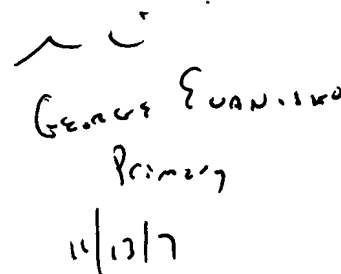 GEORGE EVANISKO
Primary
11/13/7